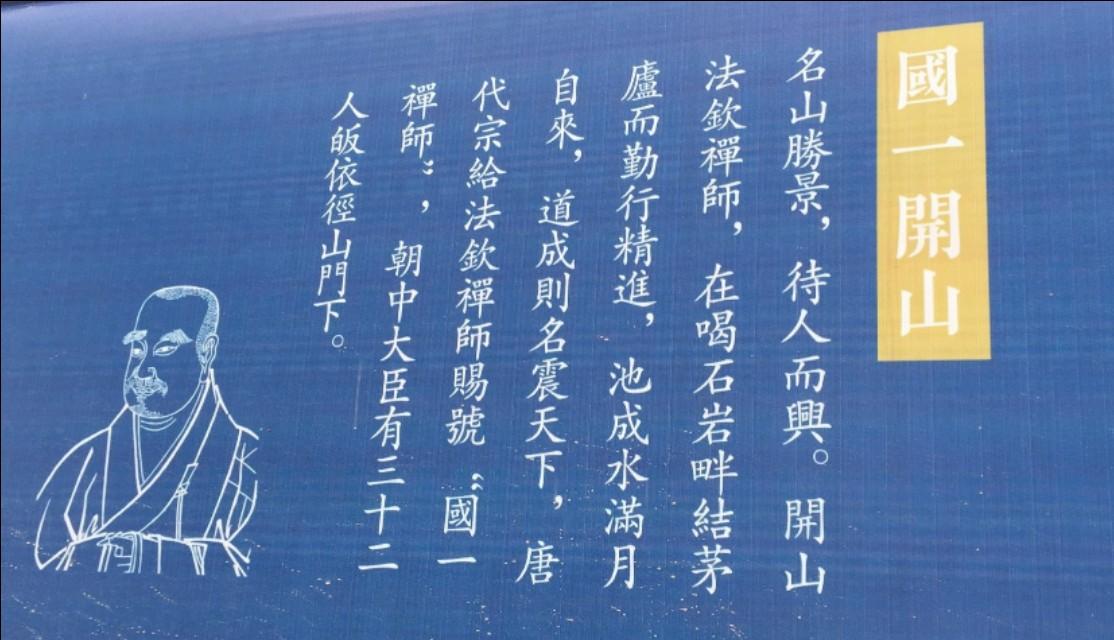 國一開山
名山勝景，待人而興。開山
法欽禪師，在喝石岩畔結茅
廬而勤行精進，池成水滿月
自來，道成則名震天下，唐
代宗給法欽禪師賜號“國一
禪師”，朝中大臣有三十二
人皈依徑山門下。